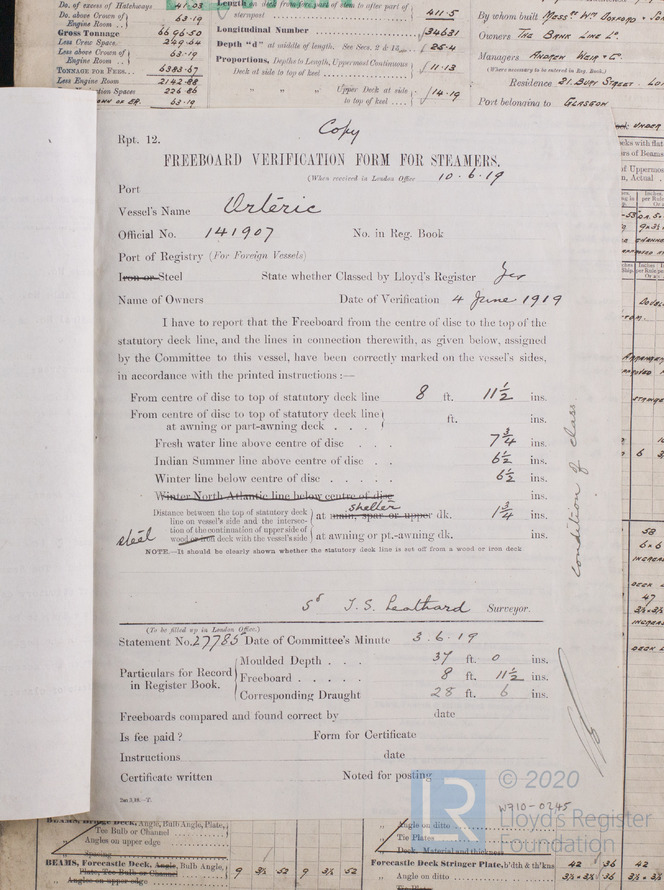 Do. of excess of Hatchways 41.03
Do. above Crown of Engine Room 63.19
Gross Tonnage 6696.50
Less Crew Space 249.64
Less above Crown of Engine Room 63.19
TONNAGE FOR FEES 6383.67
Less Engine Room 2142.88
Navigation Spaces 226.86
63.19
sternpost 411.5
Longitudinal Number 34631
Depth "d" at middle of length. See Secs. 2 & 13 25.4
Proportions, Depths to Length, Uppermost Continuous Deck at side to top of keel 11.13
" " Upper Deck at side to top of keel 14.19
By whom built Messrs Wm Doxford & Sons
Owners The Bank Line Ld.
Managers Andrew Weir & Co.
(Where necessary to be entered in Reg. Book.)
Residence 21. Bury Street. Lon
Port belonging to Glasgow
Copy
Rpt. 12.
FREEBOARD VERIFICATION FORM FOR STEAMERS.
(When received in London Office 10.6.19
Port
Vessel's Name Orteric
Official No. 141907 No. in Reg. Book
Port of Registry (For Foreign Vessels)
Iron or Steel State whether Classed by Lloyd's Register Yes
Name of Owners Date of Verification 4 June 1919
I have to report that the Freeboard from the centre of disc to the top of the
statutory deck line, and the lines in connection therewith, as given below, assigned
by the Committee to this vessel, have been correctly marked on the vessel's sides,
in accordance with the printed instructions :—
From centre of disc to top of statutory deck line 8 ft. 11½ ins.
From centre of disc to top of statutory deck line
at awning or part-awning deck . . . ft. ins.
Fresh water line above centre of disc . . . 7¾ ins.
Indian Summer line above centre of disc . . 6½ ins.
Winter line below centre of disc . . . . . 6½ ins.
Winter North Atlantic line below centre of disc ins.
shelter
Distance between the top of statutory deck
line on vessel's side and the intersec-
tion of the continuation of upper side of
steel wood or iron deck with the vessel's side
at main, spar or upper dk. 1¾ ins.
at awning or pt.-awning dk. ins.
NOTE.—It should be clearly shown whether the statutory deck line is set off from a wood or iron deck
condition of class
sd J.S. Leathard Surveyor.
(To be filled up in London Office.)
Statement No. 27785 Date of Committee's Minute 3.6.19
Particulars for Record in Register Book.
Moulded Depth . . . 37 ft. 0 ins.
Freeboard . . . . . 8 ft. 11½ ins.
Corresponding Draught 28 ft. 6 ins.
Freeboards compared and found correct by date
Is fee paid ? Form for Certificate
Instructions date
Certificate written Noted for posting
© 2020
LR
Lloyd's Register
Foundation
W910-0245
Angle, Bulb Angle, Plate,
Tee Bulb or Channel
Angles on upper edge
Spacing
BEAMS, Forecastle Deck, Angle, Bulb Angle,
Plate, Tee Bulb or Channel 9 3½ 52 9 3½ 52
Angles on upper edge
Angle on ditto
Tie Plates
Deck. Material and thickness
Forecastle Deck Stringer Plate, b'dth & th'kns 42 36 42
Angle on ditto